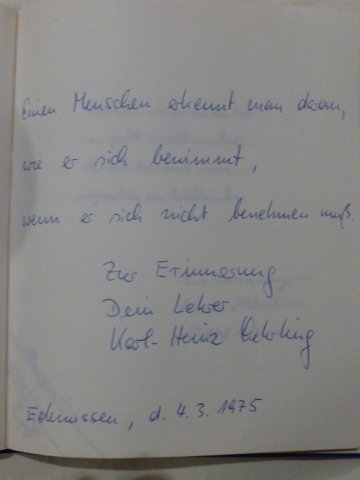 Einen Menschen erkennt man daran,
wie er sich benimmt,
wenn er sich nicht benehmen muß.
Zur Erinnerung
Dein Lehrer
Karl-Heinz
Edemissen, d. 4. 3. 1975